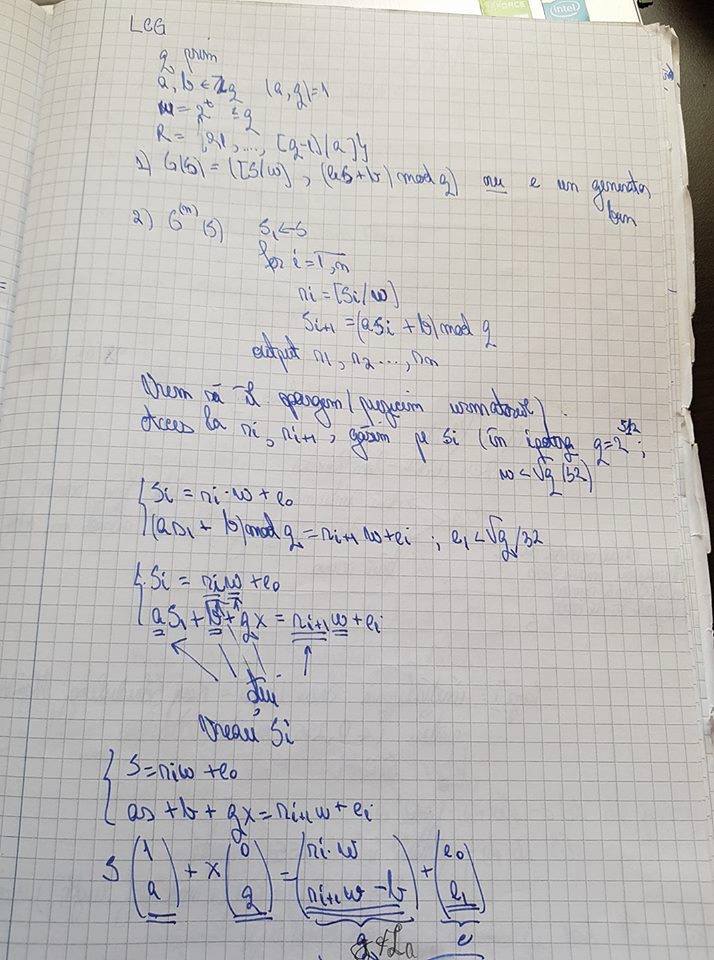 intel
LCG
q prim
a, b ∈ Zq (a, q)=1
w = 2^t ≤ q
R = {0,1,..., [(q-1)/a]}
1) G(s) = ([s/w], (as+b) mod q) nu e un generator
bun
2) G^(n)(s) s1 ← s
for i=1,n
ri = [si/w]
si+1 = (asi + b) mod q
output r1, r2 ..., rn
Vrem să îl spargem/prezicem următorul)
Acces la ri, ri+1, găsim pe si (în q=2^512;
w < √q/32)
si = ri·w + e0
(as1 + b) mod q = ri+1 w + ei ; e1 < √q/32
si = riw + e0
as1 + b + qx = ri+1 w + ei
știu
Vreau si
s = riw + e0
as + b + qx = ri+1 w + ei
s (1 a) + x (0 q) = (ri·w ri+1w - b) + (e0 e1)
g ∉ La e